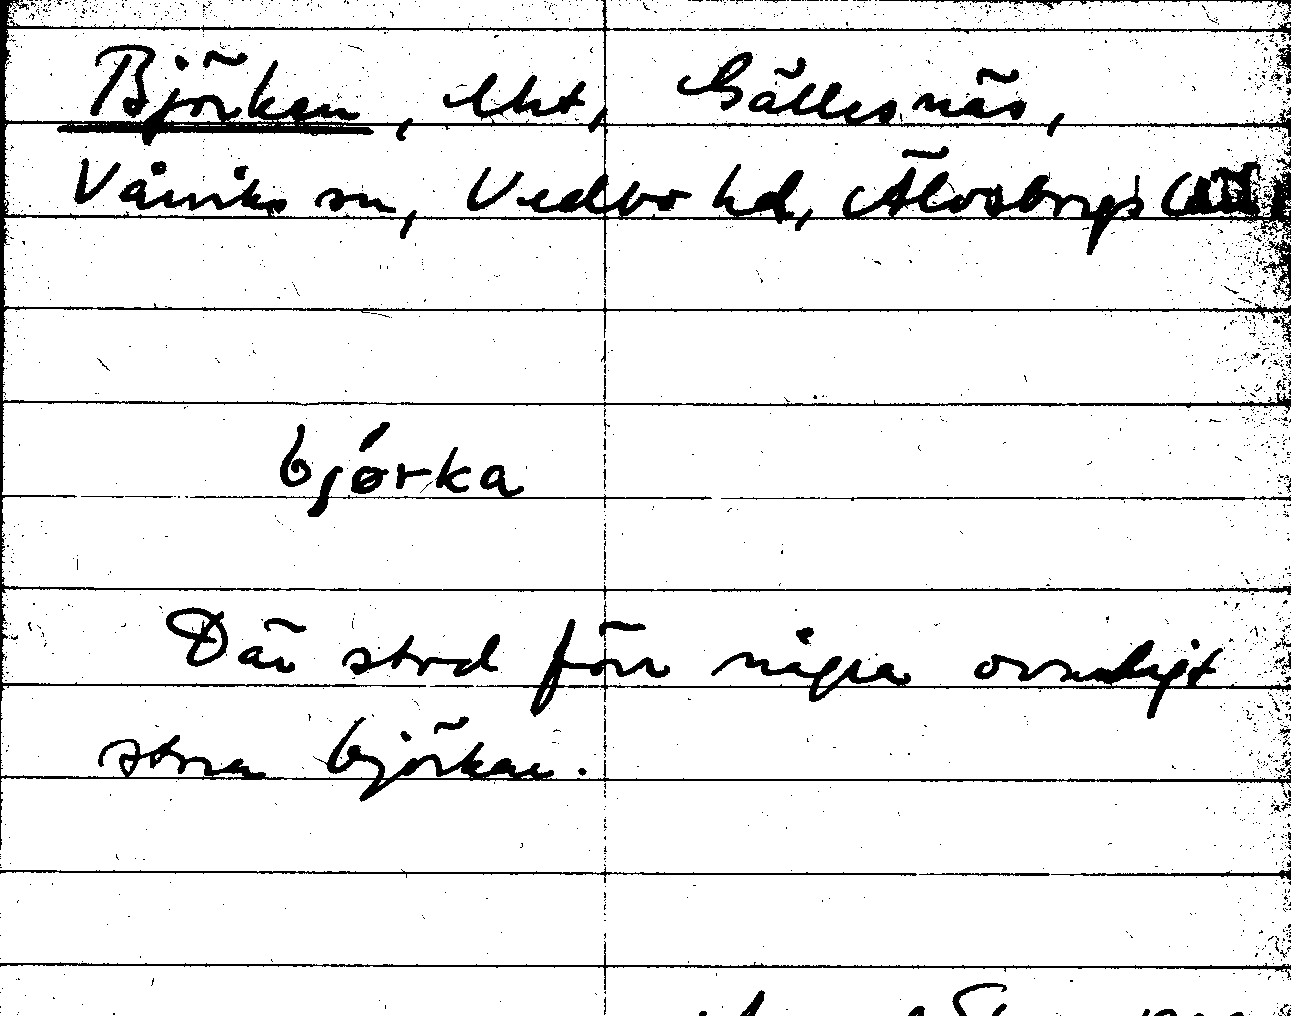 Björken, lht, Gällesnäs,
Vårviks sn, Vedbo hd, Älvsborgs
bjørka
Där stod förr några ovanligt
stora björkar.